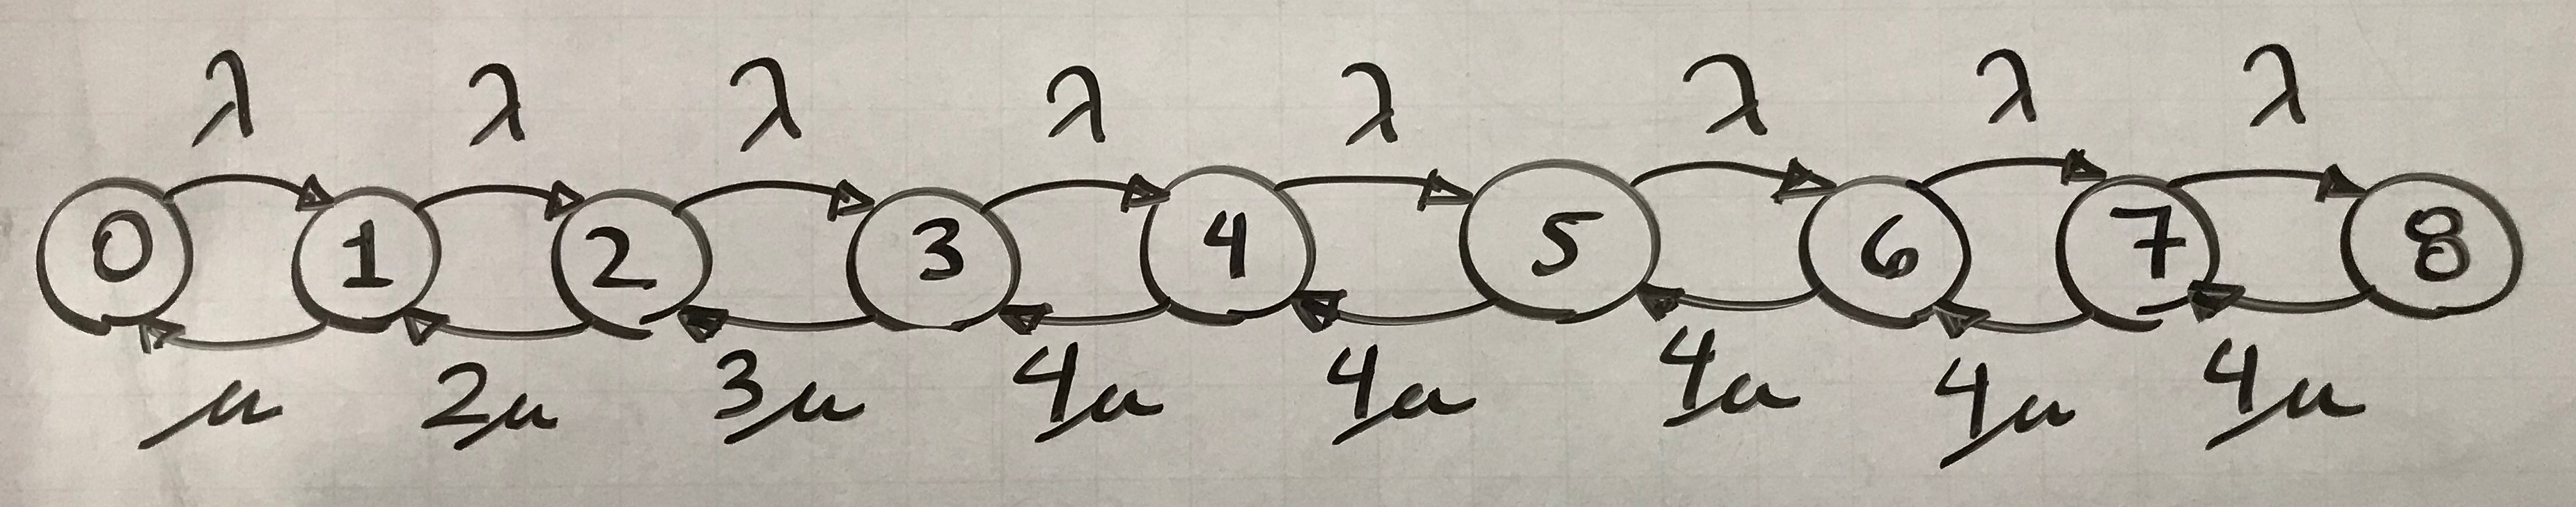 λ λ λ λ λ λ λ λ
0 1 2 3 4 5 6 7 8
μ 2μ 3μ 4μ 4μ 4μ 4μ 4μ